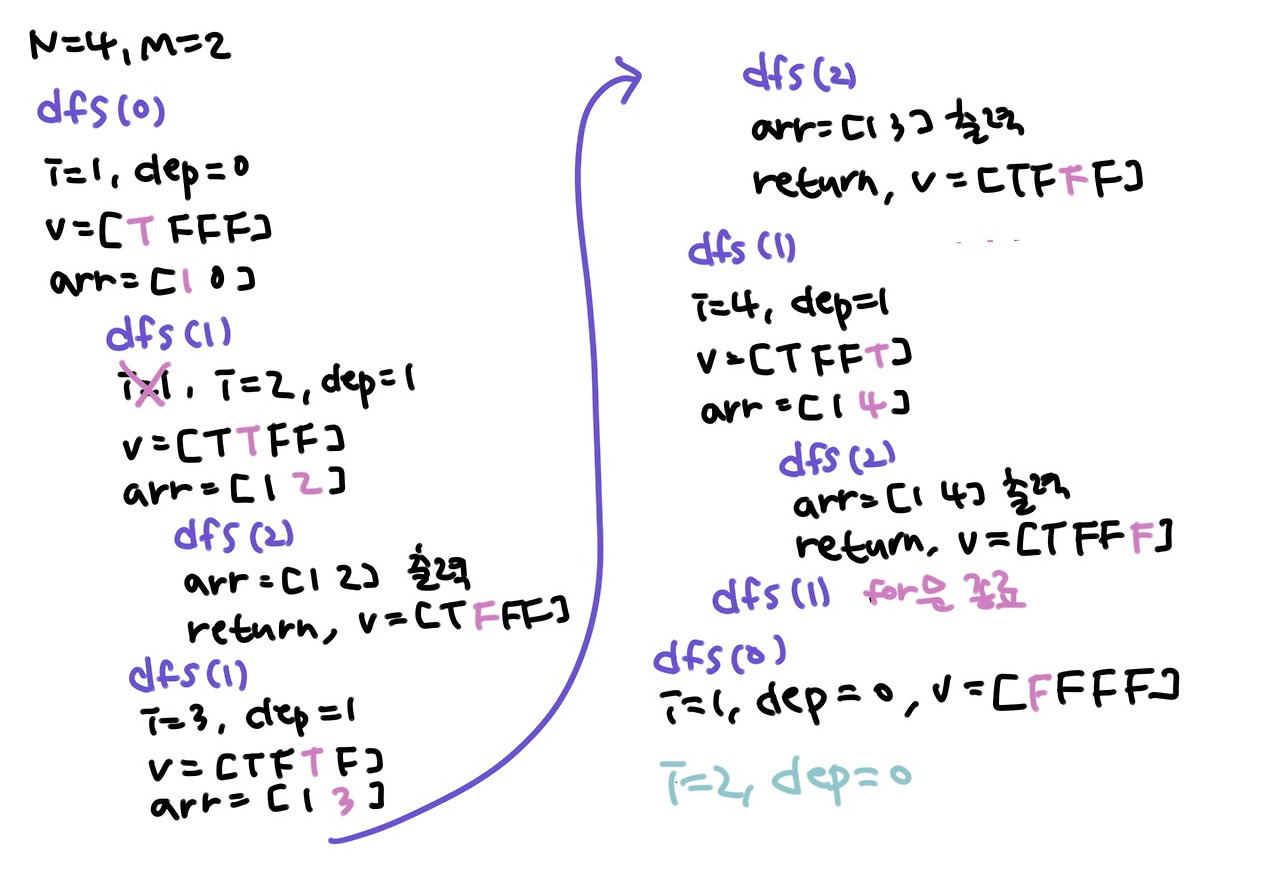 N=4, M=2
dfs(0)
i=1, dep=0
v=[T FFF]
arr=[1 0]
dfs(1)
i=1, i=2, dep=1
v=[TTFF]
arr=[1 2]
dfs(2)
arr=[1 2] 출력
return, v=[TFFF]
dfs(1)
i=3, dep=1
v=[TFTF]
arr=[1 3]
dfs(2)
arr=[1 3] 출력
return, v=[TFFF]
dfs(1)
i=4, dep=1
v=[TFFT]
arr=[1 4]
dfs(2)
arr=[1 4] 출력
return, v=[TFFF]
dfs(1) for문 종료
dfs(0)
i=1, dep=0, v=[FFFF]
i=2, dep=0